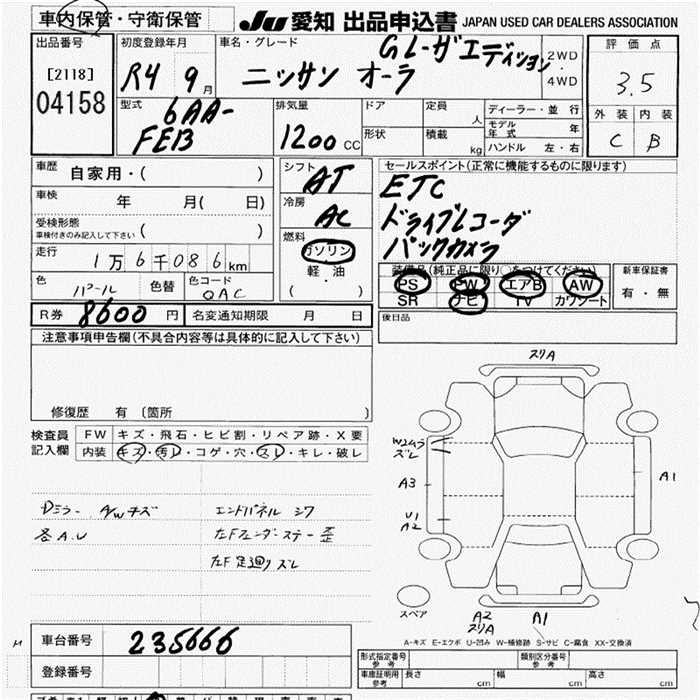 車内保管・守衛保管
JU 愛知 出品申込書 JAPAN USED CAR DEALERS ASSOCIATION
出品番号
[2118]
04158
初度登録年月
R4 9月
車名・グレード
ニッサン オーラ
2WD
・
4WD
評価点
3.5
外装 内装
C B
型式
6AA-
FE13
排気量
1200 CC
ドア
定員
人
形状
積載
kg
ディーラー・並行
モデル年式 年
ハンドル 左・右
車歴
自家用・( )
車検
年 月( 日)
受検形態
車検付きのみ記入して下さい ( )
走行
1万6千086km
色
パール
色替
色コード
QAC
シフト
AT
冷房
AC
燃料
ガソリン
軽・油
( )
セールスポイント(正常に機能するものに限ります)
ETC
ドライブレコーダ
バックカメラ
装備品(純正品に限り○をつけてください)
PS PW エアB AW
SR ナビ TV カワシート
新車保証書
有・無
R券 8600 円
名変通知期限 月 日
後日品
注意事項申告欄(不具合内容等は具体的に記入して下さい)
修復歴 有〔箇所 〕
検査員
記入欄
FW キズ・飛石・ヒビ割・リペア跡・X要
内装 キズ・汚レ・コゲ・穴・スレ・キレ・破レ
Dミラー A/Wキズ
各A.U
エンドパネル シワ
左Fフェンダーステー歪
左F足廻りズレ
スリA
W2ムラ
ズレ
A3
U1
A2
A1
スペア
A2
スリA
A1
A-キズ E-エクボ U-凹み W-補修跡 S-サビ C-腐食 XX-交換済
車台番号
235666
登録番号
形式指定番号
参考
類別区分番号
参考
車庫証明用
参考
長さ cm
幅 cm
高さ cm